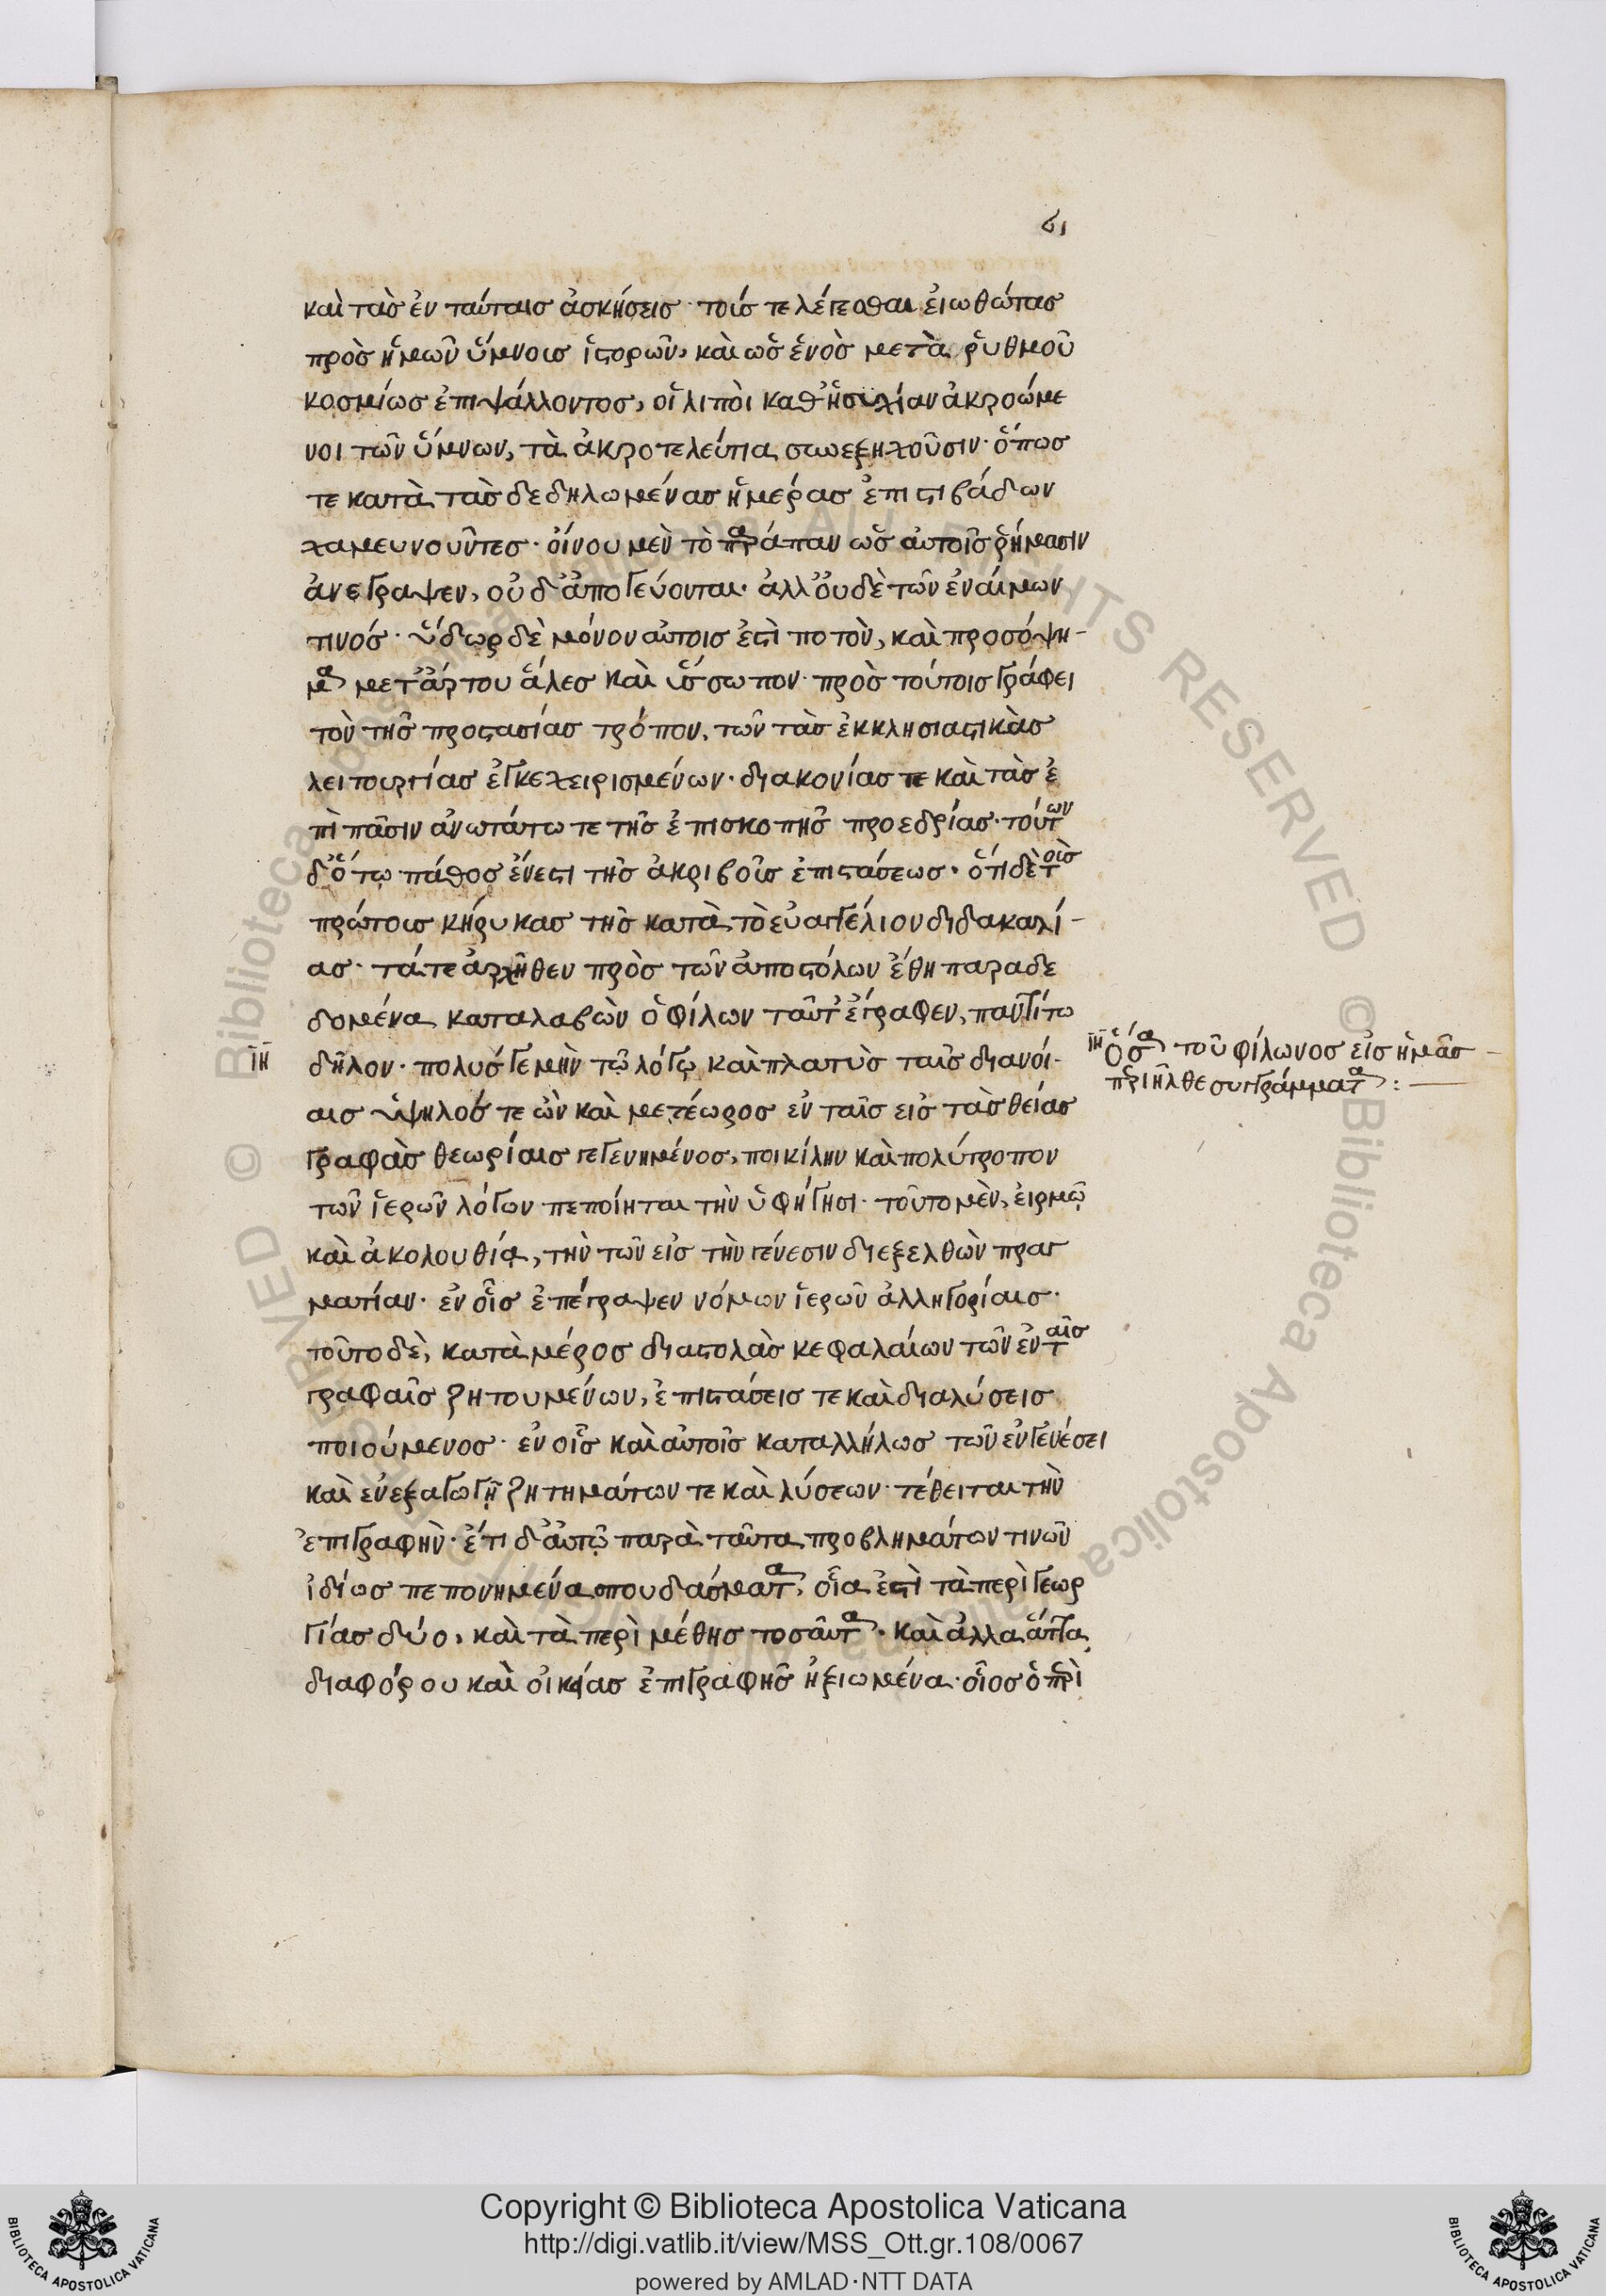 61
καὶ τὰσ ἐν ταύταισ ἀσκήσεισ· τούσ τε λέγεσθαι ἐιωθώτασ
πρὸσ ἡμῶν ὕμνουσ ἱστορῶν, καὶ ὡσ ἑνὸσ μετὰ ῥυθμοῦ
κοσμίωσ ἐπιψάλλοντοσ, οἱ λιποὶ καθ' ἡσυχίαν ἀκροώμε
νοι τῶν ὕμνων, τὰ ἀκροτελεύτια συνεξηχοῦσιν· ὅπωσ
τε κατὰ τὰσ δεδηλωμένασ ἡμέρασ ἐπι στιβάδων
χαμευνοῦντεσ· οἴνου μὲν τὸ παράπαν ὡσ αὐτοῖσ ῥήμασιν
ἀνεγραψεν, οὐδ' ἀπογεύονται· ἀλλ' οὐδὲ τῶν ἐναίμων
τινόσ· ὕδωρ δὲ μόνον αὐτοισ ἐστὶ ποτὸν, καὶ προσόψη-
μα μετ' ἄρτου ἅλεσ καὶ ὕσσωπον· πρὸσ τούτοισ γράφει
τὸν τῆσ προστασίασ τρόπον, τῶν τὰσ ἐκκλησιαστικὰσ
λειτουργίασ ἐγκεχειρισμένων· διακονίασ τε καὶ τὰσ ἐ
πὶ πᾶσιν ἀνωτάτω τε τῆσ ἐπισκοπῆσ προεδρίασ· τούτων
δ' ὅτῳ πάθοσ ἔνεστι τῆσ ἀκριβοῦσ ἐπιστάσεωσ· ὅτι δὲ τοὺσ
πρώτουσ κήρυκασ τῆσ κατὰ τὸ εὐαγγέλιον διδακαλί-
ασ· τά τε ἀρχῆθεν πρὸσ τῶν ἀποστόλων ἔθη παραδε
δομένα καταλαβὼν ὁ φίλων ταῦτ' ἔγραφεν, παντί τω
ιη δῆλον· πολύσ γε μὴν τῷ λόγῳ καὶ πλατὺσ ταῖσ διανοί-
αισ ὑψηλόσ τε ὢν καὶ μετέωροσ ἐν ταῖσ εἰσ τὰσ θείασ
γραφὰσ θεωρίαισ γεγενημένοσ, ποικίλην καὶ πολύτροπον
τῶν ἱερῶν λόγων πεποίηται τὴν ὑφήγησι· τοῦτο μὲν, εἱρμῷ
καὶ ἀκολουθίᾳ, τὴν τῶν εἰσ τὴν γένεσιν διεξελθὼν πραγ
ματίαν· ἐν οἷσ ἐπέγραψεν νόμων ἱερῶν ἀλληγορίαισ·
τοῦτο δὲ, κατὰ μέροσ διαστολὰσ κεφαλαίων τῶν ἐν ταῖσ
γραφαῖσ ζητουμένων, ἐπιστάσεισ τε καὶ διαλύσεισ
ποιούμενοσ· ἐν οἷσ καὶ αὐτοῖσ καταλλήλωσ τῶν ἐν γενέσει
καὶ ἐν ἐξαγωγῇ ζητημάτων τε καὶ λύσεων· τέθειται τὴν
ἐπιγραφὴν· ἔτι δ' ἀυτῷ παρὰ ταῦτα προβλημάτων τινῶν
ἰδίωσ πεπονημένα σπουδάσματα, οἷα ἐστὶ τὰ περὶ γεωρ
γίασ δύο, καὶ τὰ περὶ μέθησ τοσαῦτα· καὶ ἄλλα ἅττα
διαφόρου καὶ οἰκίασ ἐπιγραφῆσ ἠξιωμένα· οἷοσ ὁ περὶ
ιη ὅσα τοῦ φίλωνοσ εἰσ ἡμᾶσ –
περιῆλθε συγγράμματα : —
Copyright © Biblioteca Apostolica Vaticana
http://digi.vatlib.it/view/MSS_Ott.gr.108/0067
powered by AMLAD·NTT DATA